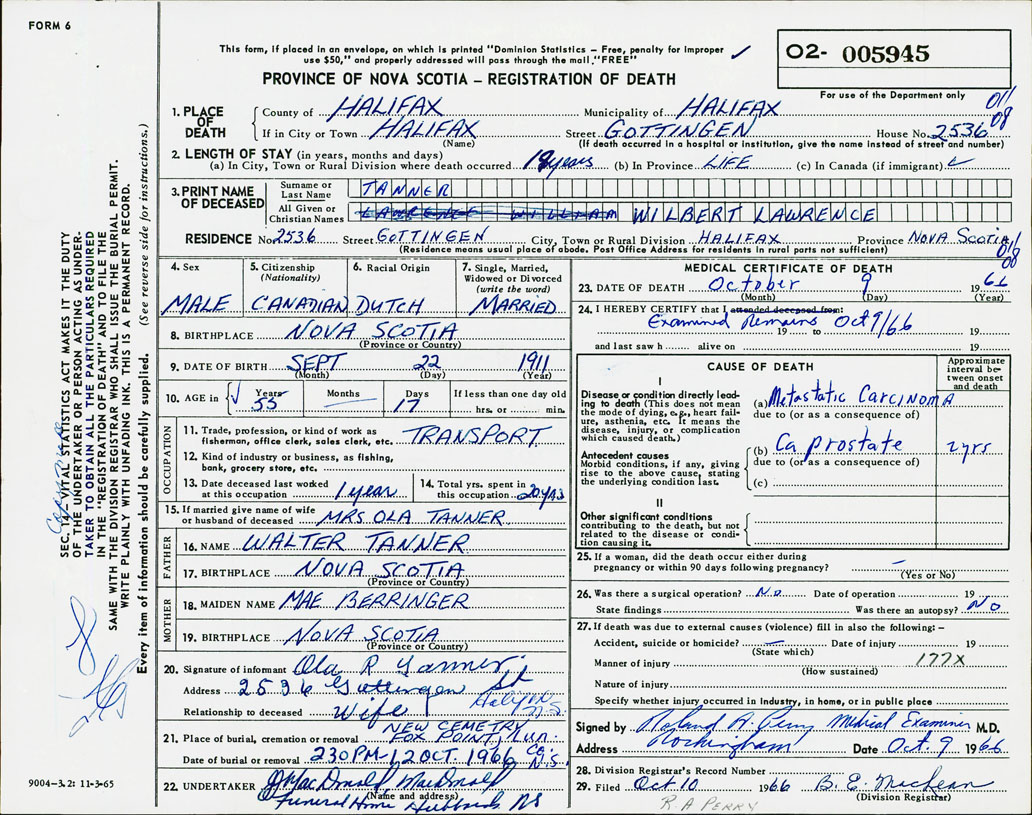 FORM 6
This form, if placed in an envelope, on which is printed "Dominion Statistics – Free, penalty for improper
use $50," and properly addressed will pass through the mail "FREE"
✓
O2- 005945
PROVINCE OF NOVA SCOTIA – REGISTRATION OF DEATH
For use of the Department only
011
08
1. PLACE OF DEATH
County of HALIFAX Municipality of HALIFAX
If in City or Town HALIFAX Street GOTTINGEN House No. 2536
(Name) (If death occurred in a hospital or institution, give the name instead of street and number)
2. LENGTH OF STAY (in years, months and days)
(a) In City, Town or Rural Division where death occurred 19 years (b) In Province LIFE (c) In Canada (if immigrant)
3. PRINT NAME OF DECEASED
Surname or Last Name TANNER
All Given or Christian Names LAWRENCE WILLIAM WILBERT LAWRENCE
RESIDENCE No. 2536 Street GOTTINGEN City, Town or Rural Division HALIFAX Province NOVA SCOTIA
(Residence means usual place of abode. Post Office Address for residents in rural parts not sufficient)
011
08
4. Sex
MALE
5. Citizenship
(Nationality)
CANADIAN
6. Racial Origin
DUTCH
7. Single, Married,
Widowed or Divorced
(write the word)
MARRIED
8. BIRTHPLACE NOVA SCOTIA
(Province or Country)
9. DATE OF BIRTH SEPT 22 1911
(Month) (Day) (Year)
10. AGE in Years Months Days If less than one day old
55 17 hrs. or min.
OCCUPATION
11. Trade, profession, or kind of work as
fisherman, office clerk, sales clerk, etc. TRANSPORT
12. Kind of industry or business, as fishing,
bank, grocery store, etc.
13. Date deceased last worked
at this occupation 1 year
14. Total yrs. spent in
this occupation 20 yrs
15. If married give name of wife
or husband of deceased MRS OLA TANNER
FATHER
16. NAME WALTER TANNER
17. BIRTHPLACE NOVA SCOTIA
(Province or Country)
MOTHER
18. MAIDEN NAME MAE BERRINGER
19. BIRTHPLACE NOVA SCOTIA
(Province or Country)
20. Signature of informant Ola R Tanner
Address 2536 Gottingen St
Halifax N.S.
Relationship to deceased Wife
21. Place of burial, cremation or removal NEW CEMETRY
FOX POINT, LUN. CO. N.S.
Date of burial or removal 230 PM - 12 OCT. 1966
22. UNDERTAKER J MacDonald MacDonald
(Name and address)
Funeral Home Hubbards NS
MEDICAL CERTIFICATE OF DEATH
23. DATE OF DEATH October 9 1966
(Month) (Day) (Year)
24. I HEREBY CERTIFY that I attended deceased from:
Examined Remains Oct 9/66
19 to 19
and last saw h alive on 19
CAUSE OF DEATH
Approximate interval between onset and death
I
Disease or condition directly leading to death (This does not mean the mode of dying, e.g., heart failure, asthenia, etc. It means the disease, injury, or complication which caused death.)
(a) Metastatic Carcinoma
due to (or as a consequence of)
Antecedent causes
Morbid conditions, if any, giving rise to the above cause, stating the underlying condition last.
(b) Ca prostate 2 yrs
due to (or as a consequence of)
(c)
II
Other significant conditions
contributing to the death, but not related to the disease or condition causing it.
25. If a woman, did the death occur either during
pregnancy or within 90 days following pregnancy? –
(Yes or No)
26. Was there a surgical operation? No Date of operation 19
State findings Was there an autopsy? No
27. If death was due to external causes (violence) fill in also the following: –
Accident, suicide or homicide? – Date of injury 19
(State which)
177X
Manner of injury
(How sustained)
Nature of injury
Specify whether injury occurred in Industry, in home, or in public place
Signed by Roland A. Perry Medical Examiner M.D.
Address Rockingham Date Oct. 9 1966
28. Division Registrar's Record Number
29. Filed Oct 10 1966 B. E. MacLean
(Division Registrar)
R A PERRY
SEC. 14, VITAL STATISTICS ACT MAKES IT THE DUTY
OF THE UNDERTAKER OR PERSON ACTING AS UNDER-
TAKER TO OBTAIN ALL THE PARTICULARS REQUIRED
IN THE "REGISTRATION OF DEATH" AND TO FILE THE
SAME WITH THE DIVISION REGISTRAR WHO SHALL ISSUE THE BURIAL PERMIT.
WRITE PLAINLY WITH UNFADING INK. THIS IS A PERMANENT RECORD.
Every item of information should be carefully supplied. (See reverse side for instructions.)
9004-3.2: 11-3-65